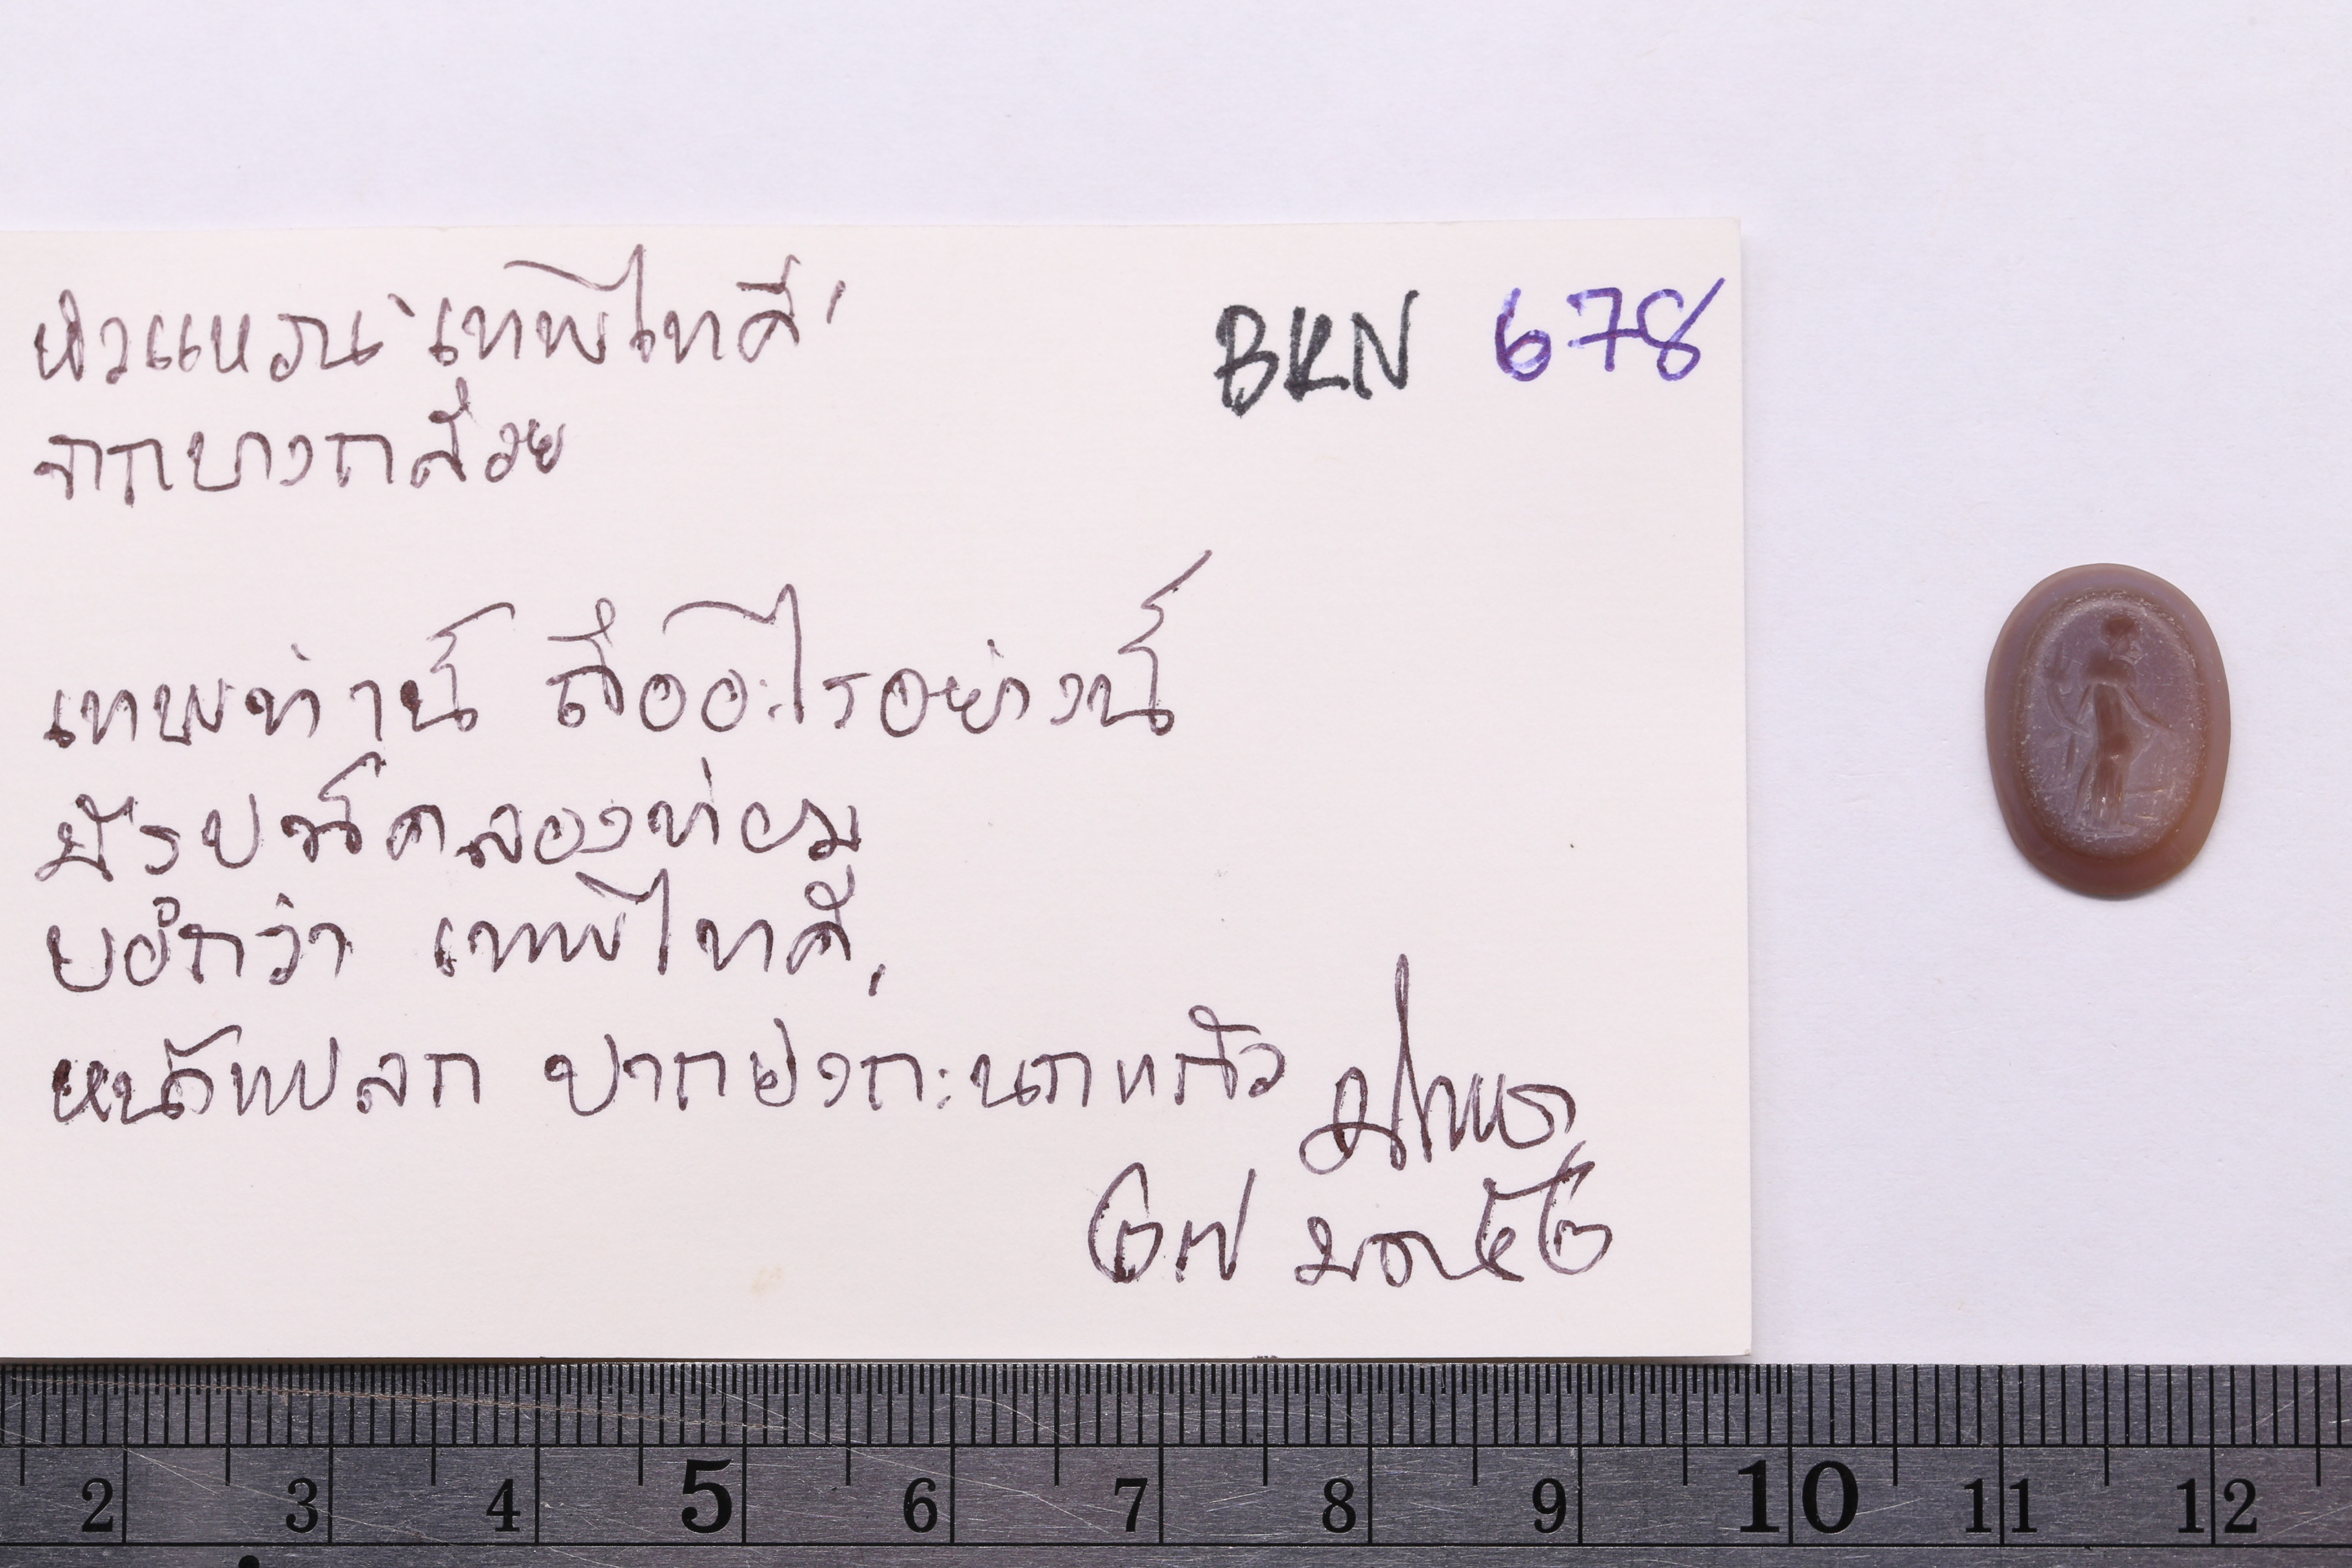 หัวแหวน "เทพีไทคี"
BKN 678
จากบางกล้วย
เทพท่านี้ ถืออะไรอย่างนี้
มีรูปนี้คลองท่อม
บอกว่า เทพีไทคี,
หน้าแปลก ปากยังกะนกแก้ว
๒๗ มค ๕๒
2 3 4 5 6 7 8 9 10 11 12